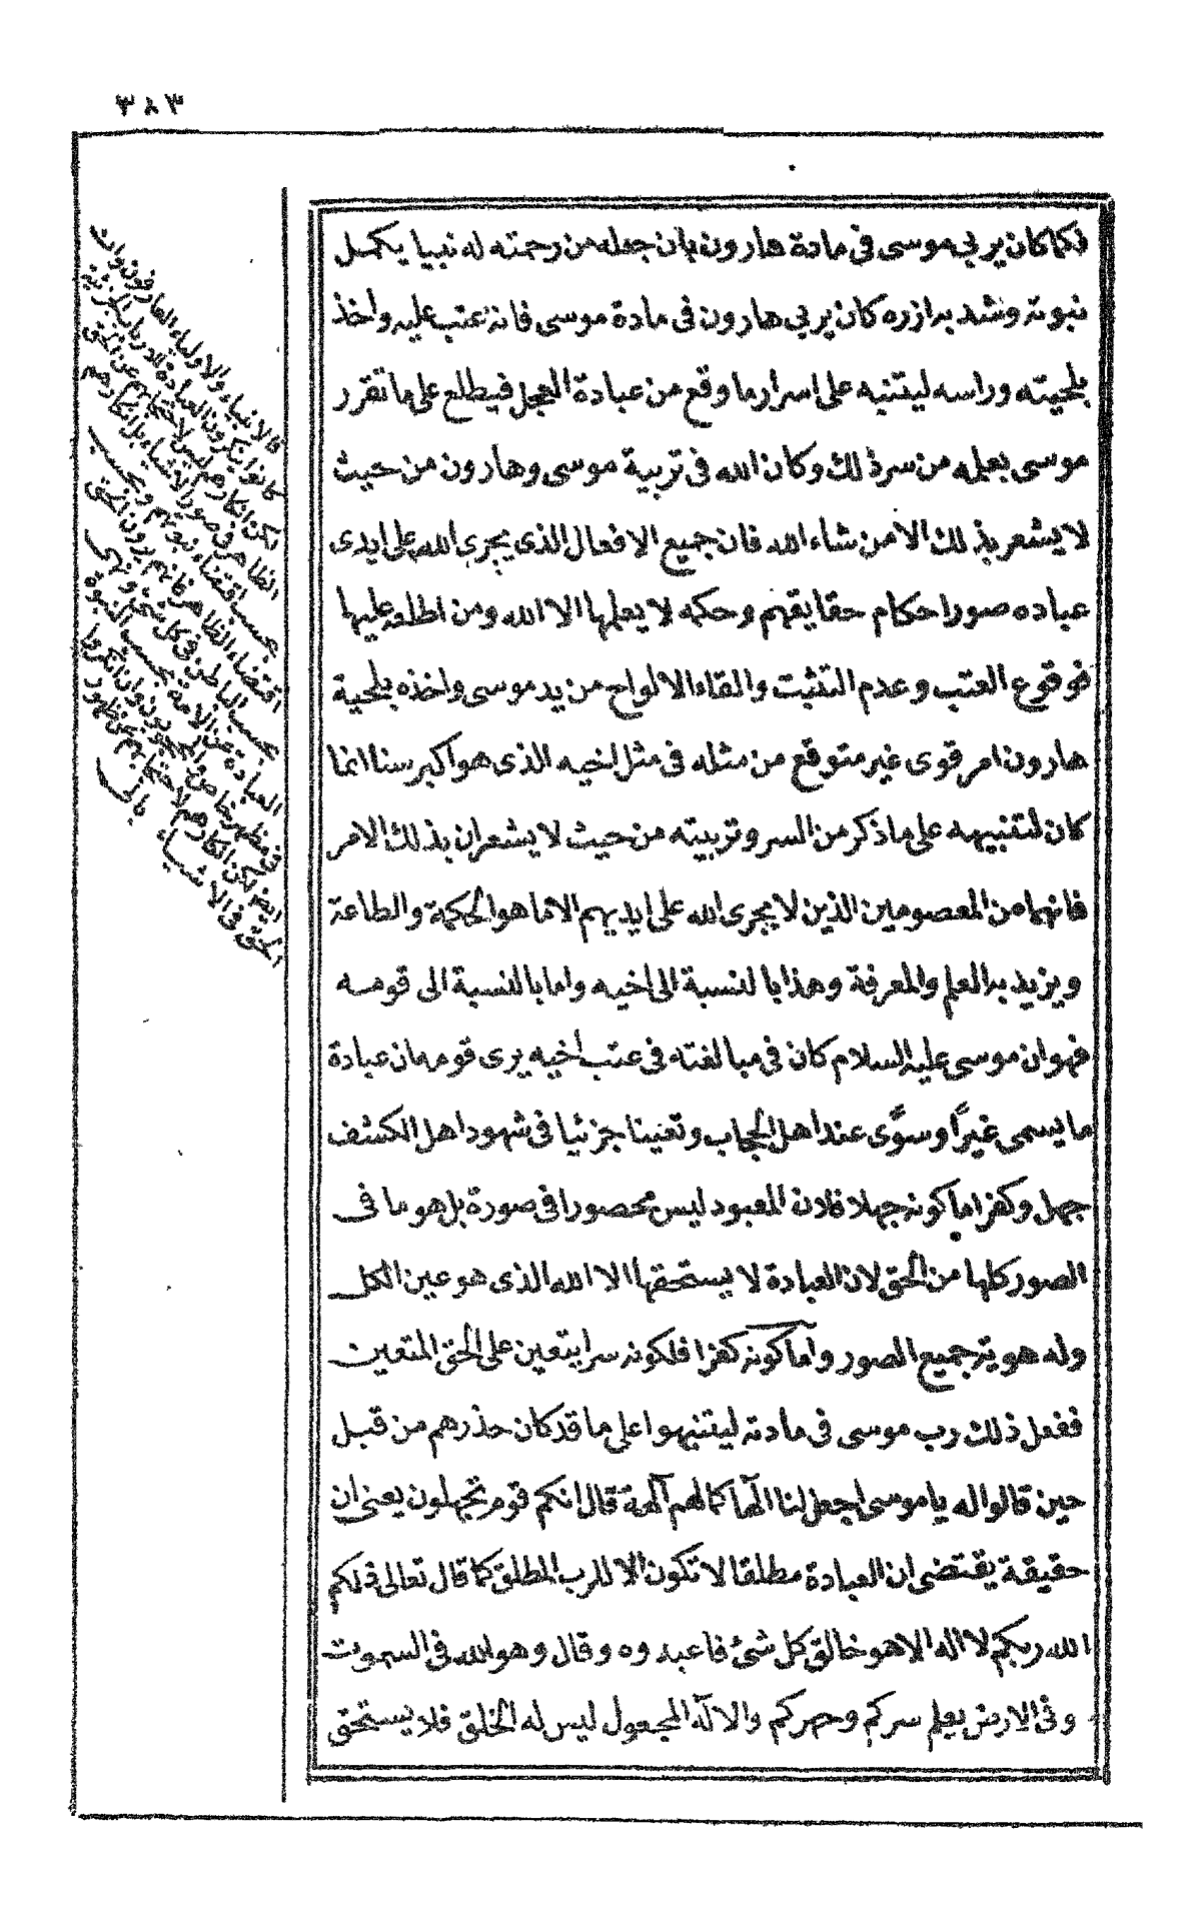 ٣٨٣
فكما كان يربي موسى فى مادة هارون بان جعله من رحمته له نبيا يكمل
نبوته وشد به ازره كان يربي هارون فى مادة موسى فانه عتب عليه واخذ
بلحيته وراسه ليتنبه على اسرار ما وقع من عبادة العجل فيطلع على ما تقرر
موسى بعمله من سر ذلك وكان الله فى تربية موسى وهارون من حيث
لا يشعر بذلك الا من شاء الله فان جميع الافعال الذى يجرى الله على ايدى
عباده صور احكام حقايقهم وحكمه لا يعلمها الا الله ومن اطلعه عليها
فوقوع العتب وعدم التثبت والقاء الالواح من يد موسى واخذه بلحية
هارون امر قوى غير متوقع من مثله فى مثل اخيه الذى هو اكبر سنا انما
كان لتنبيهه على ما ذكر من السر وتربيته من حيث لا يشعران بذلك الامر
فانهما من المعصومين الذين لا يجرى الله على ايديهم الا ما هو الحكمة والطاعة
ويزيد به العلم والمعرفة وهذا بالنسبة الى اخيه واما بالنسبة الى قومه
فهو ان موسى عليه السلام كان فى مبالغته فى عتب اخيه يرى قومه ان عبادة
ما يسمى غيرًا وسوًى عند اهل الحجاب وتعينا جزئيا فى شهود اهل الكشف
جهل وكفر اما كونه جهلا فلان المعبود ليس محصورا فى صورة بل هو ما فى
الصور كلها من الحق لان العبادة لا يستحقها الا الله الذى هو عين الكل
وله هوية جميع الصور واما كونه كفرا فلكونه سرا يتعين على الحق المتعين
ففعل ذلك رب موسى فى مادته ليتنبهوا على ما قد كان حذرهم من قبل
حين قالوا له يا موسى اجعل لنا الٓها كما لهم آلهة قال انكم قوم تجهلون يعنى ان
حقيقة يقتضى ان العبادة مطلقا لا تكون الا للرب المطلق كما قال تعالى ذلكم
الله ربكم لا اله الا هو خالق كل شئ فاعبدوه وقال وهو الله فى السموت
وفى الارض يعلم سركم وجهركم والالٓه المجعول ليس له الخلق فلا يستحق
فالانبياء والاولياء العارفون وان
كانوا ينكرون العبادة للارباب الجزئية
لكن انكارهم ليس لاحتجابهم عن الحق
الظاهر فى صور الاشياء بل انكارهم
بحسب اقتضاء نبوتهم وبحسب
اقتضاء الظاهر فانهم يرون الحق
بحسب الباطن فى كل شئ ونهى
العبادة عن الامة بحسب النبوة
فى مظهر خاص والمحجوبون وان انكروا
ايضا لكن انكارهم لاحتجابهم عن ظهور
الحق فى الاشياء بالى